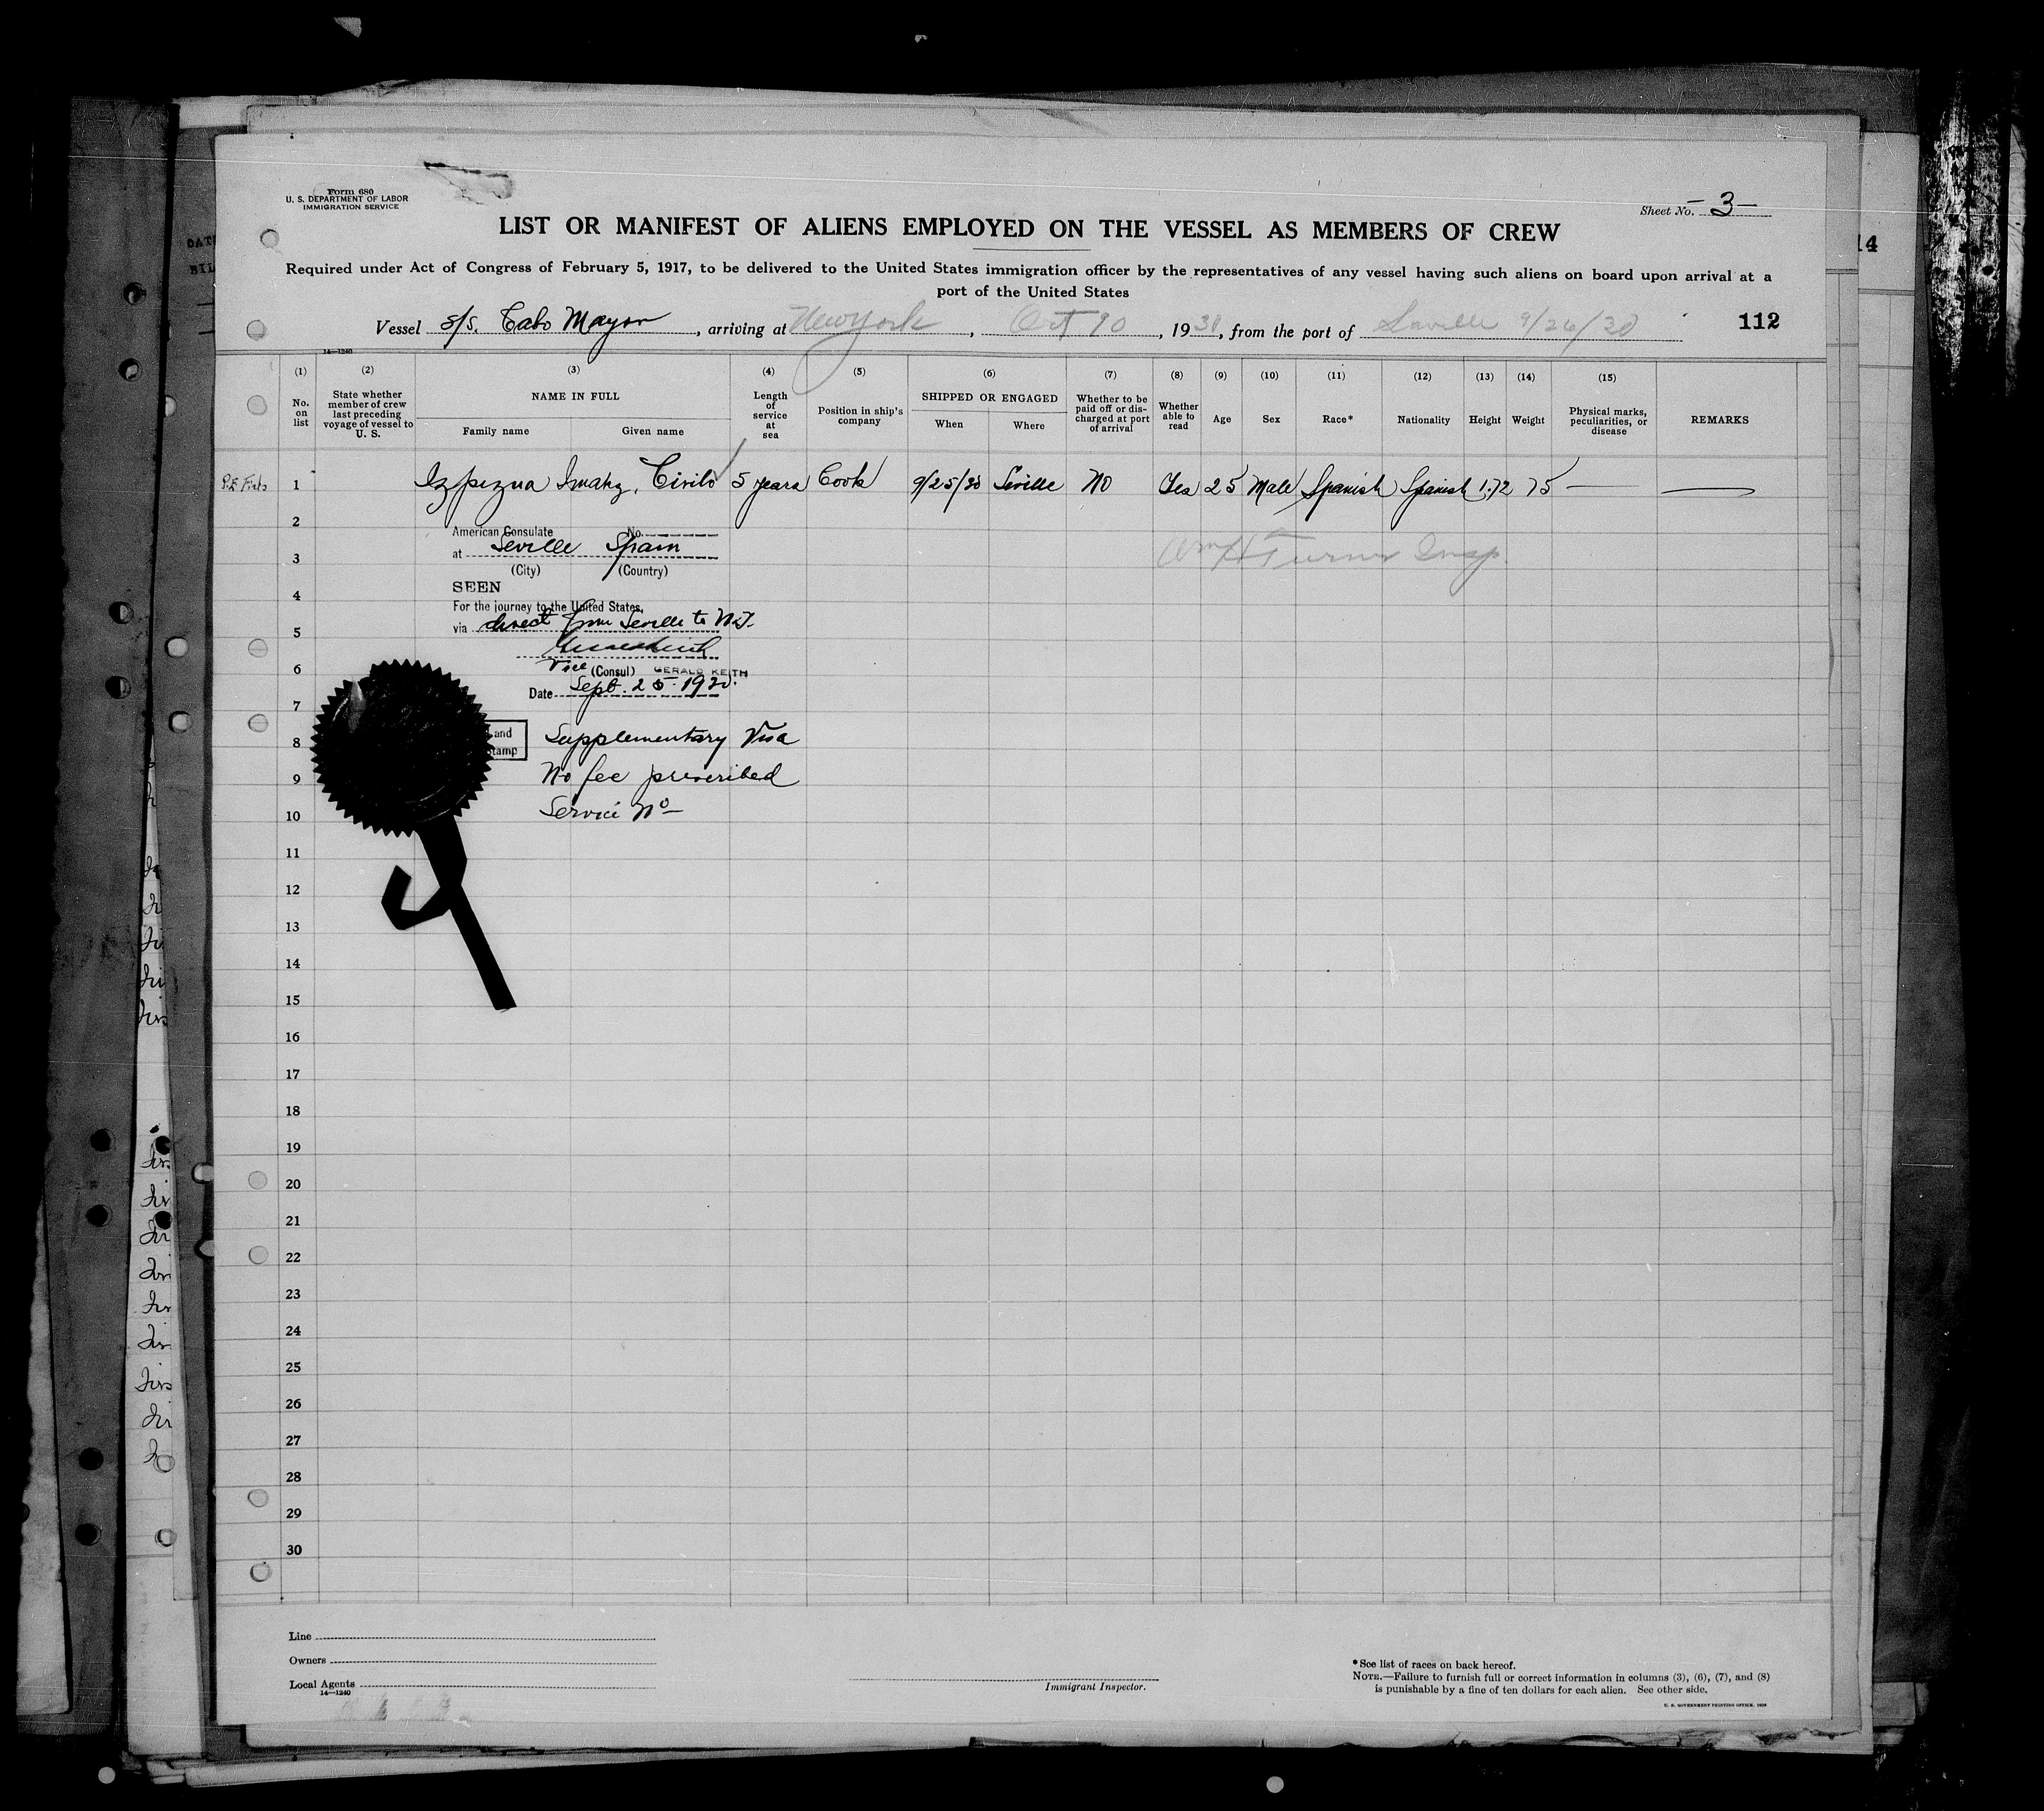 Form 680
U. S. DEPARTMENT OF LABOR
IMMIGRATION SERVICE
Sheet No. -3-
LIST OR MANIFEST OF ALIENS EMPLOYED ON THE VESSEL AS MEMBERS OF CREW
Required under Act of Congress of February 5, 1917, to be delivered to the United States immigration officer by the representatives of any vessel having such aliens on board upon arrival at a
port of the United States
Vessel S/S. Cabo Mayor, arriving at New York, Oct 10, 1930, from the port of Seville 9/26/30
112
14
14—1240
(1) (2) (3) (4) (5) (6) (7) (8) (9) (10) (11) (12) (13) (14) (15)
No. on list
State whether member of crew last preceding voyage of vessel to U. S.
NAME IN FULL
Family name
Given name
Length of service at sea
Position in ship's company
SHIPPED OR ENGAGED
When
Where
Whether to be paid off or discharged at port of arrival
Whether able to read
Age
Sex
Race*
Nationality
Height
Weight
Physical marks, peculiarities, or disease
REMARKS
1 Izpizua Cirilo 5 years Cook 9/25/30 Seville No Yes 25 Male Spanish Spanish 1.72 75 — —
2
American Consulate No.
at Seville Spain
3
(City) (Country)
Wm H Turner Insp.
SEEN
4
For the journey to the United States,
via direct from Seville to N.Y.
5
6
Vice (Consul) GERALD KEITH
Date Sept. 25-1930.
7
and
Stamp
8
Supplementary Visa
9
No fee prescribed
10
Service No —
11
12
13
14
15
16
17
18
19
20
21
22
23
24
25
26
27
28
29
30
Line
Owners
Local Agents
14—1240
Immigrant Inspector.
*See list of races on back hereof.
NOTE.—Failure to furnish full or correct information in columns (3), (6), (7), and (8)
is punishable by a fine of ten dollars for each alien. See other side.